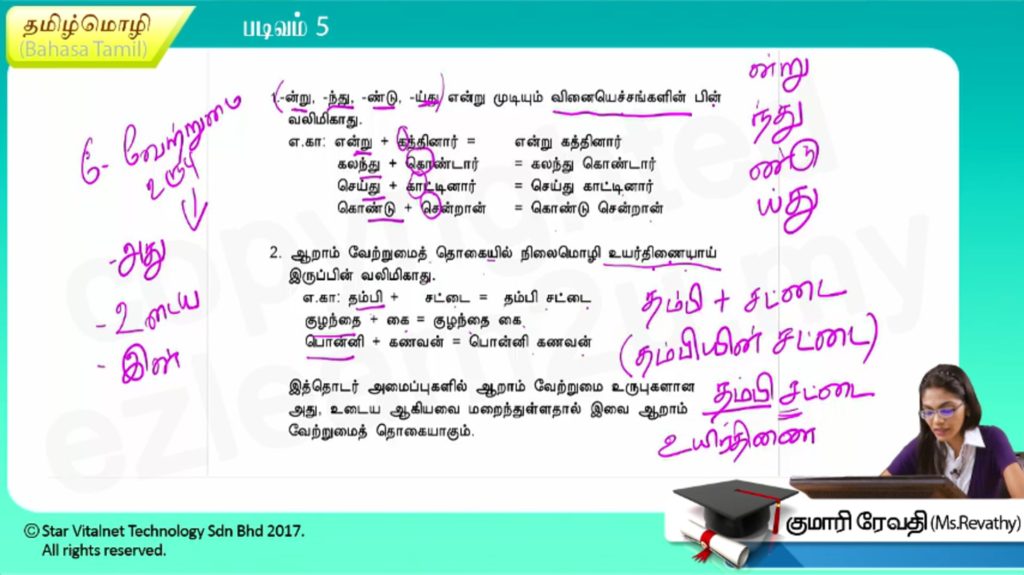 தமிழ்மொழி
(Bahasa Tamil)
படிவம் 5
1.-ன்று, -ந்து, -ண்டு, -ய்து என்று முடியும் வினையெச்சங்களின் பின்
வலிமிகாது.
எ.கா: என்று + கத்தினார் = என்று கத்தினார்
கலந்து + கொண்டார் = கலந்து கொண்டார்
செய்து + காட்டினார் = செய்து காட்டினார்
கொண்டு + சென்றான் = கொண்டு சென்றான்
2. ஆறாம் வேற்றுமைத் தொகையில் நிலைமொழி உயர்திணையாய்
இருப்பின் வலிமிகாது.
எ.கா: தம்பி + சட்டை = தம்பி சட்டை
குழந்தை + கை = குழந்தை கை
பொன்னி + கணவன் = பொன்னி கணவன்
இத்தொடர் அமைப்புகளில் ஆறாம் வேற்றுமை உருபுகளான
அது, உடைய ஆகியவை மறைந்துள்ளதால் இவை ஆறாம்
வேற்றுமைத் தொகையாகும்.
6- வேற்றுமை
உருபு
-அது
- உடைய
- இன்
ன்று
ந்து
ண்டு
ய்து
தம்பி + சட்டை
(தம்பியின் சட்டை)
தம்பி சட்டை
உயிர்திணை
copyrighted
குமாரி ரேவதி (Ms.Revathy)
© Star Vitalnet Technology Sdn Bhd 2017.
All rights reserved.